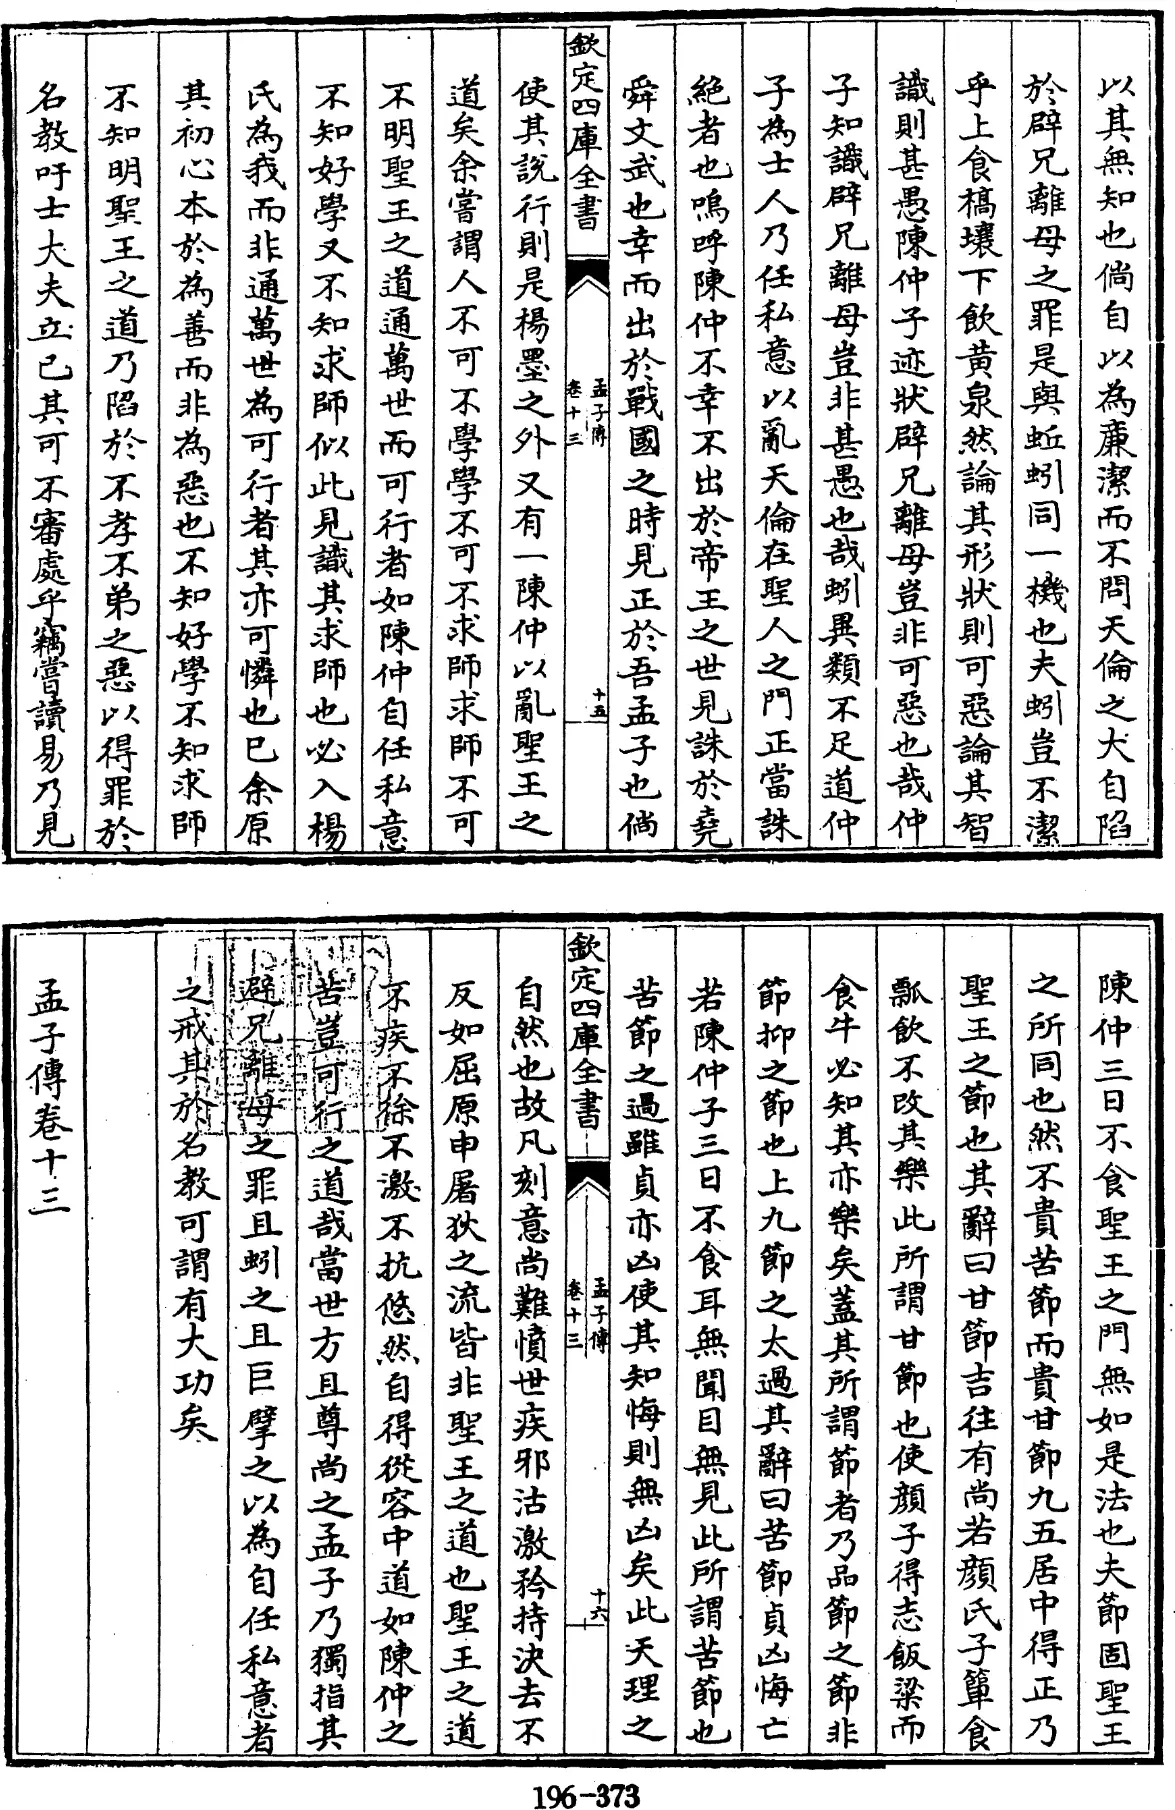 以其無知也倘自以為廉潔而不問天倫之大自陷
於辟兄離母之罪是與蚯蚓同一機也夫蚓豈不潔
乎上食槁壤下飲黄泉然論其形狀則可惡論其智
識則甚愚陳仲子迹狀辟兄離母豈非可惡也哉仲
子知識辟兄離母豈非甚愚也哉蚓異類不足道仲
子為士人乃任私意以亂天倫在聖人之門正當誅
絶者也嗚呼陳仲不幸不出於帝王之世見誅於堯
舜文武也幸而出於戰國之時見正於吾孟子也倘
欽定四庫全書
孟子傳
卷十三
十五
使其説行則是楊墨之外又有一陳仲以亂聖王之
道矣余嘗謂人不可不學學不可不求師求師不可
不明聖王之道通萬世而可行者如陳仲自任私意
不知好學又不知求師似此見識其求師也必入楊
氏為我而非通萬世為可行者其亦可憐也已余原
其初心本於為善而非為惡也不知好學不知求師
不知明聖王之道乃陷於不孝不弟之惡以得罪於
名教吁士大夫立已其可不審處乎竊嘗讀易乃見
陳仲三日不食聖王之門無如是法也夫節固聖王
之所同也然不貴苦節而貴甘節九五居中得正乃
聖王之節也其辭曰甘節吉往有尚若顔氏子簞食
瓢飲不改其樂此所謂甘節也使顔子得志飯粱而
食牛必知其亦樂矣蓋其所謂節者乃品節之節非
節抑之節也上九節之太過其辭曰苦節貞凶悔亡
若陳仲子三日不食耳無聞目無見此所謂苦節也
苦節之過雖貞亦凶使其知悔則無凶矣此天理之
欽定四庫全書
孟子傳
卷十三
十六
自然也故凡刻意尚難憤世疾邪沽激矜持決去不
反如屈原申屠狄之流皆非聖王之道也聖王之道
不疾不徐不激不抗悠然自得從容中道如陳仲之
苦豈可行之道哉當世方且尊尚之孟子乃獨指其
避兄離母之罪且蚓之且巨擘之以為自任私意者
之戒其於名教可謂有大功矣
孟子傳卷十三
196-373